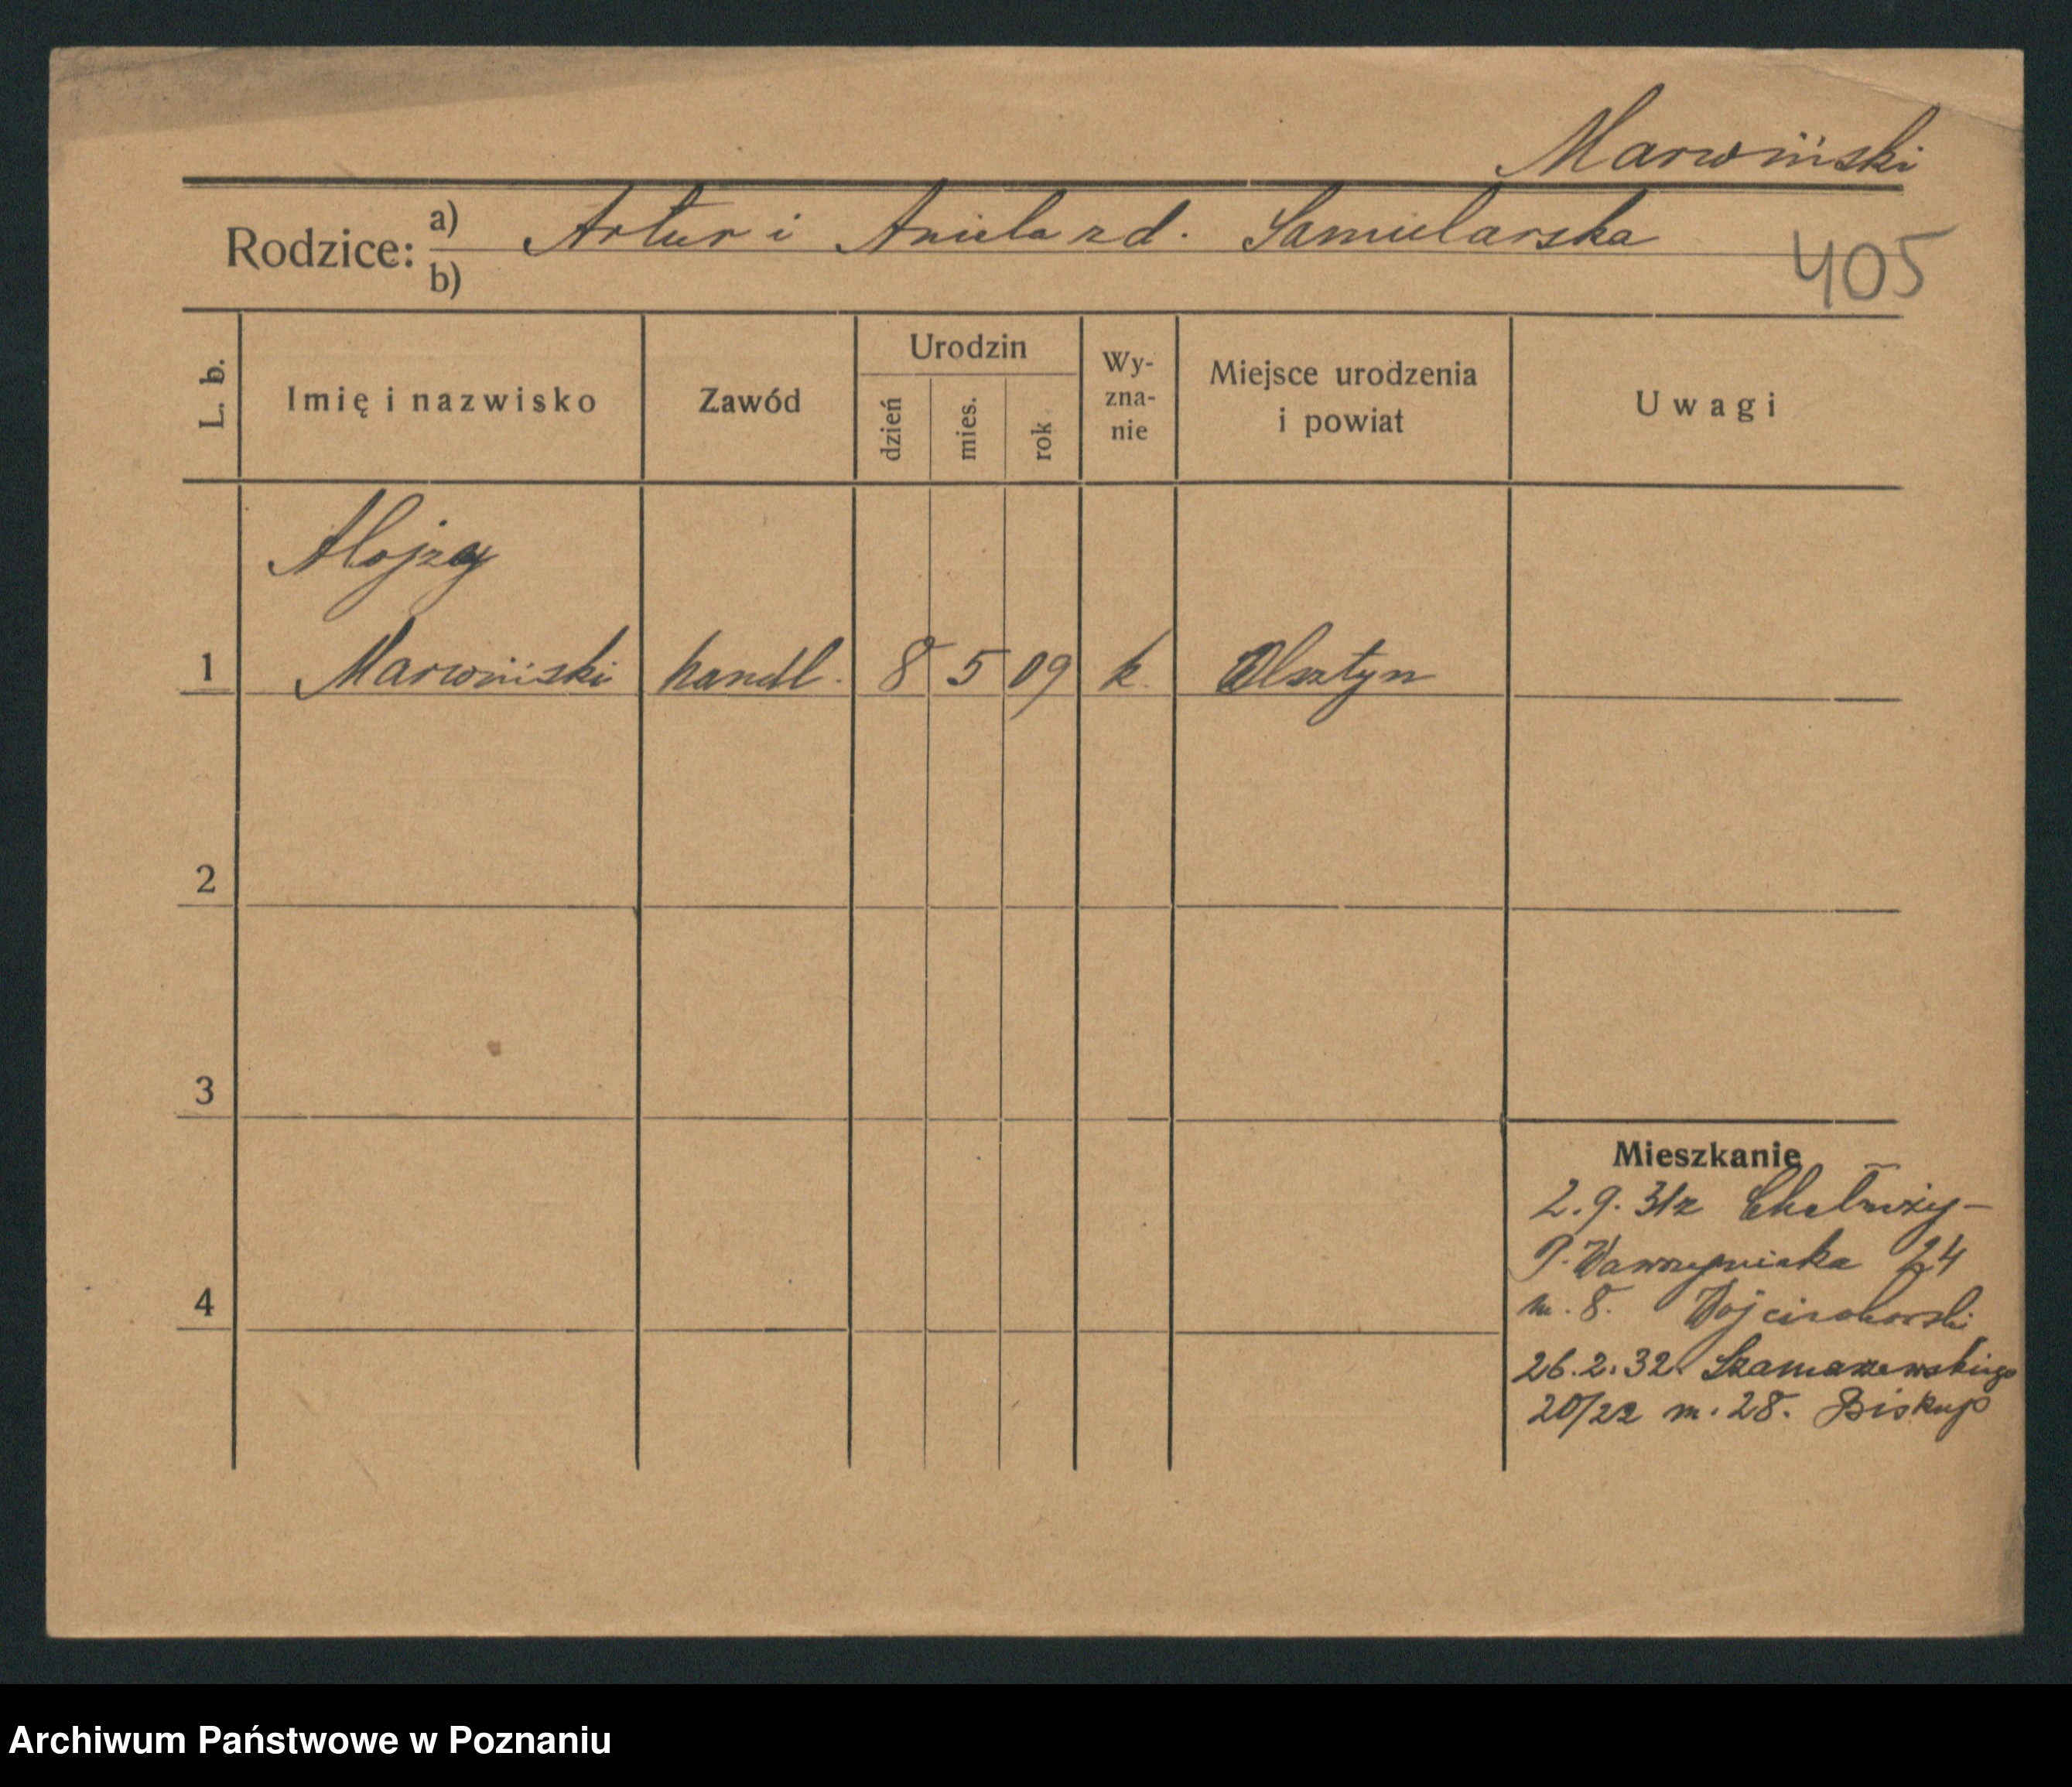 Marwiński
Rodzice: a) Artur i Aniela zd. Samularska
b)
405
L. b. Imię i nazwisko Zawód Urodzin dzień mies. rok Wy-zna-nie Miejsce urodzenia i powiat Uwagi
Alojzy
1 Marwiński handl. 8 5 09 k. Olsztyn
2
3
Mieszkanie
2.9.31 z Chełmży -
P. Wawrzyniaka 24
4
m. 8. Wojciechorski
26.2.32. Szamarzewskiego
20/22 m. 28. Biskup
Archiwum Państwowe w Poznaniu